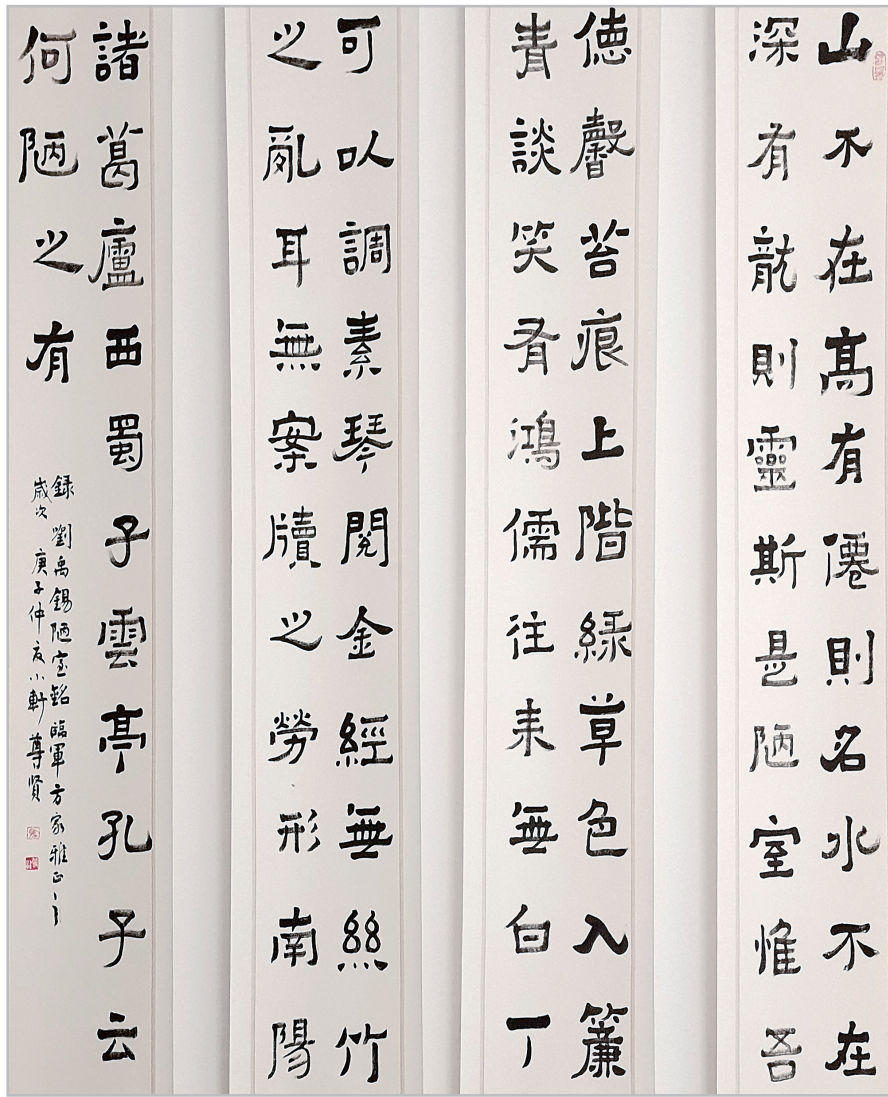 山不在髙有僊則名水不在
深有龍則靈斯是陋室惟吾
徳馨苔痕上階緑草色入簾
青談笑有鴻儒往来無白丁
可以調素琴閲金經無絲竹
之亂耳無案牘之勞形南陽
諸葛廬西蜀子雲亭孔子云
何陋之有
録劉禹錫陋室銘臨軍方家雅正之
歲次庚子仲夏小軒尊賢